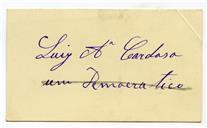 Luiz Aª Cardoso
um Democratico